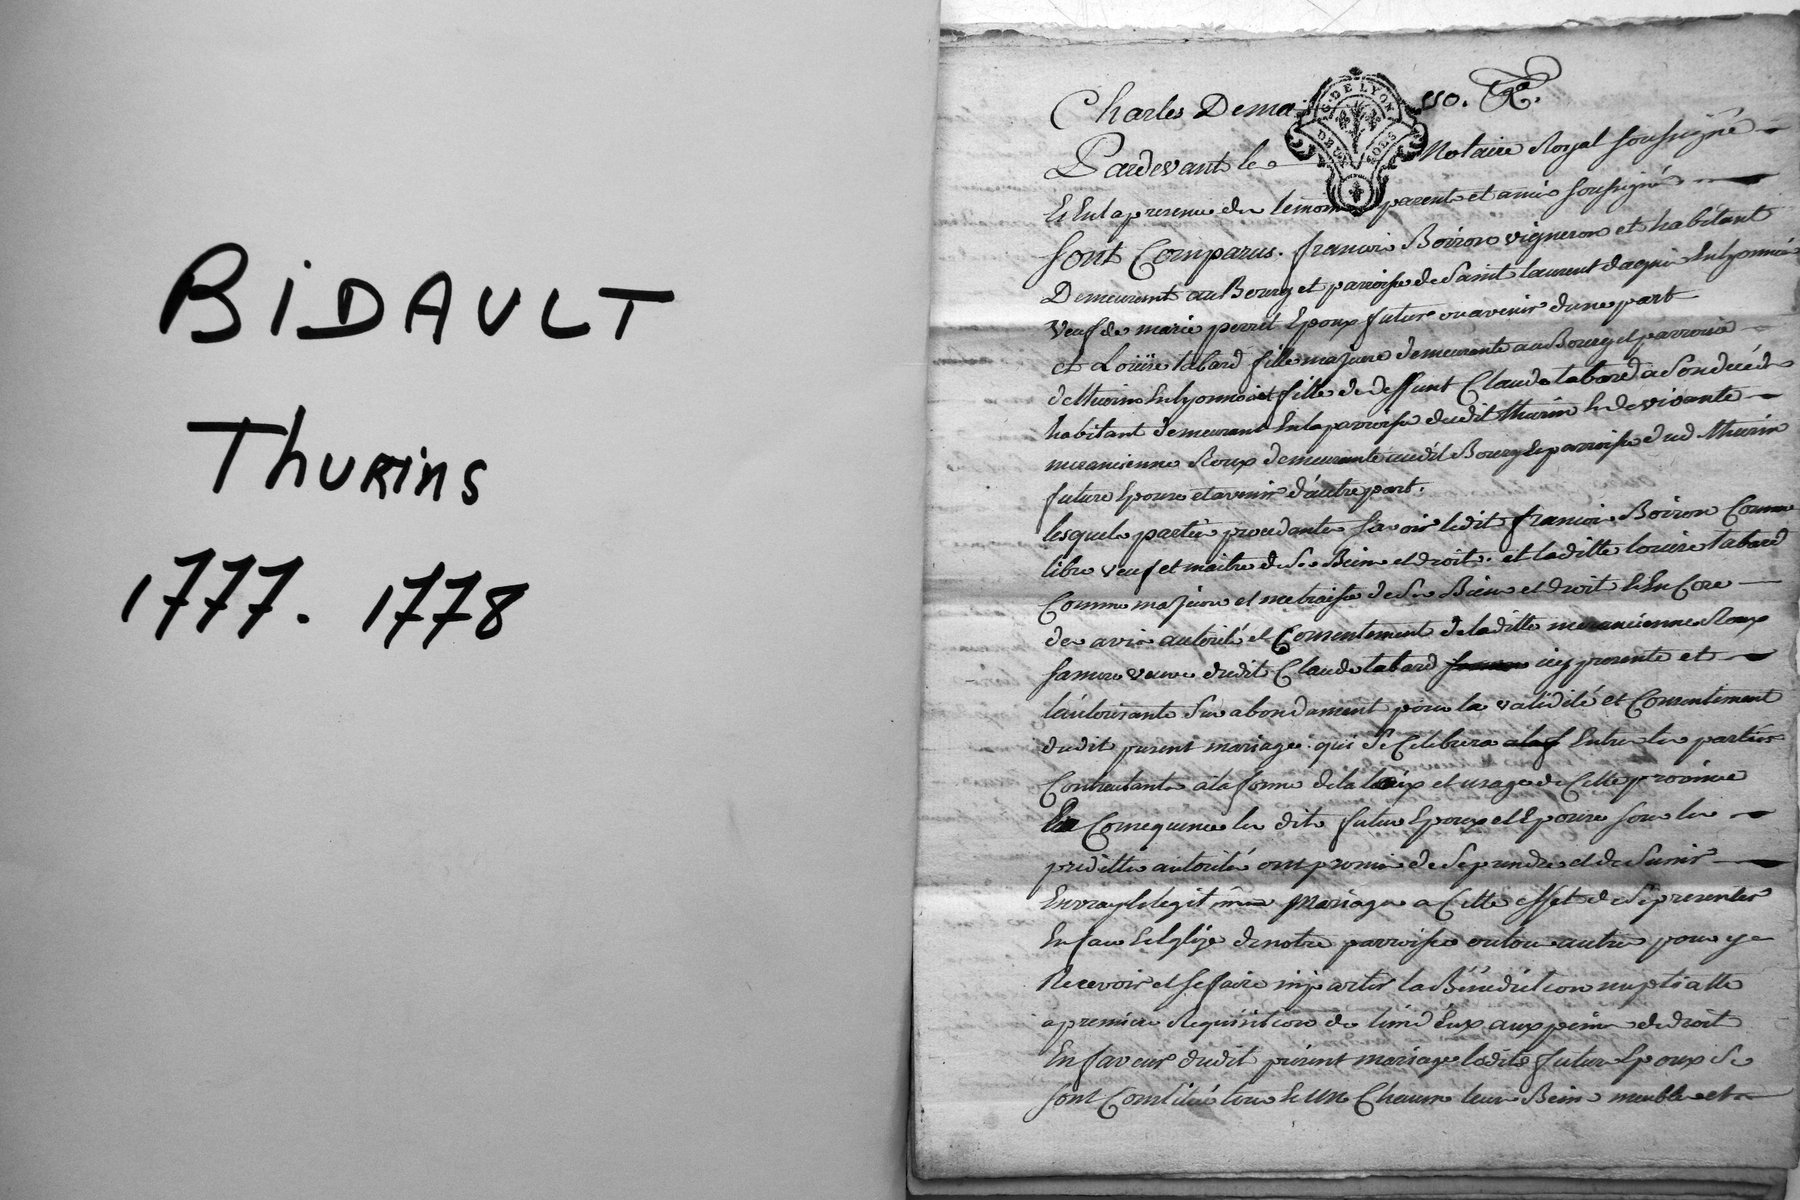 BIDAULT
Thurins
1777. 1778
G. DE LYON
DEUX SOLS
Charles Dema
Pardevant le Notaire Royal soussigné
Et En la presence des temoins parents et amis soussignés
sont Comparus. francois Boiron vigneron et habitant
Demeurent au Bourg et parroisse de Saint laurent dagni En lyonnois
veuf de marie perret Epoux futur ou avenir dune part
et Loüise tabard fille majeure demeurante au Bourg et parroisse
de thurins En lyonnois et fille de deffunt Claude tabard a Son decéds
habitant demeurant En la parroisse dudit thurin Et de vivante
demeurante audit Bourg Et parroisse dud thurin
future Epouse et avenir d'autre part.
lesquels parties procedantes savoir ledit francois Boiron Comme
libre veuf et maitre de Ses Biens et droits. et laditte louise tabard
Comme majeure et metraisse de Ses Biens et droits Et EnCore
de avis autorité et Consentement de laditte Roux
sa mere veuve dudit Claude tabard icy presente et
l'autorisante Sur abondament pour la validité et Consentement
dudit present mariage. qui Se Celebrera Entre les parties
Contractants a la forme de la loix et usage de Cette province
En Consequence les dits futurs Epoux et Epouse sous les
preditte autorités ont promis de Se prendre et de Sunir
En vray Et legitime Mariage a Cette effet de Se presenter
En face Eglize de notre parroisse ou toute autre pour y
Recevoir et se faire impartir la Bénédiction nuptiatte
a premiere Requisition de Eux aux peines de droit
En faveur dudit present mariage lesdits futurs Epoux Se
sont Constitués tous Et un Chacun leurs Biens meubles et